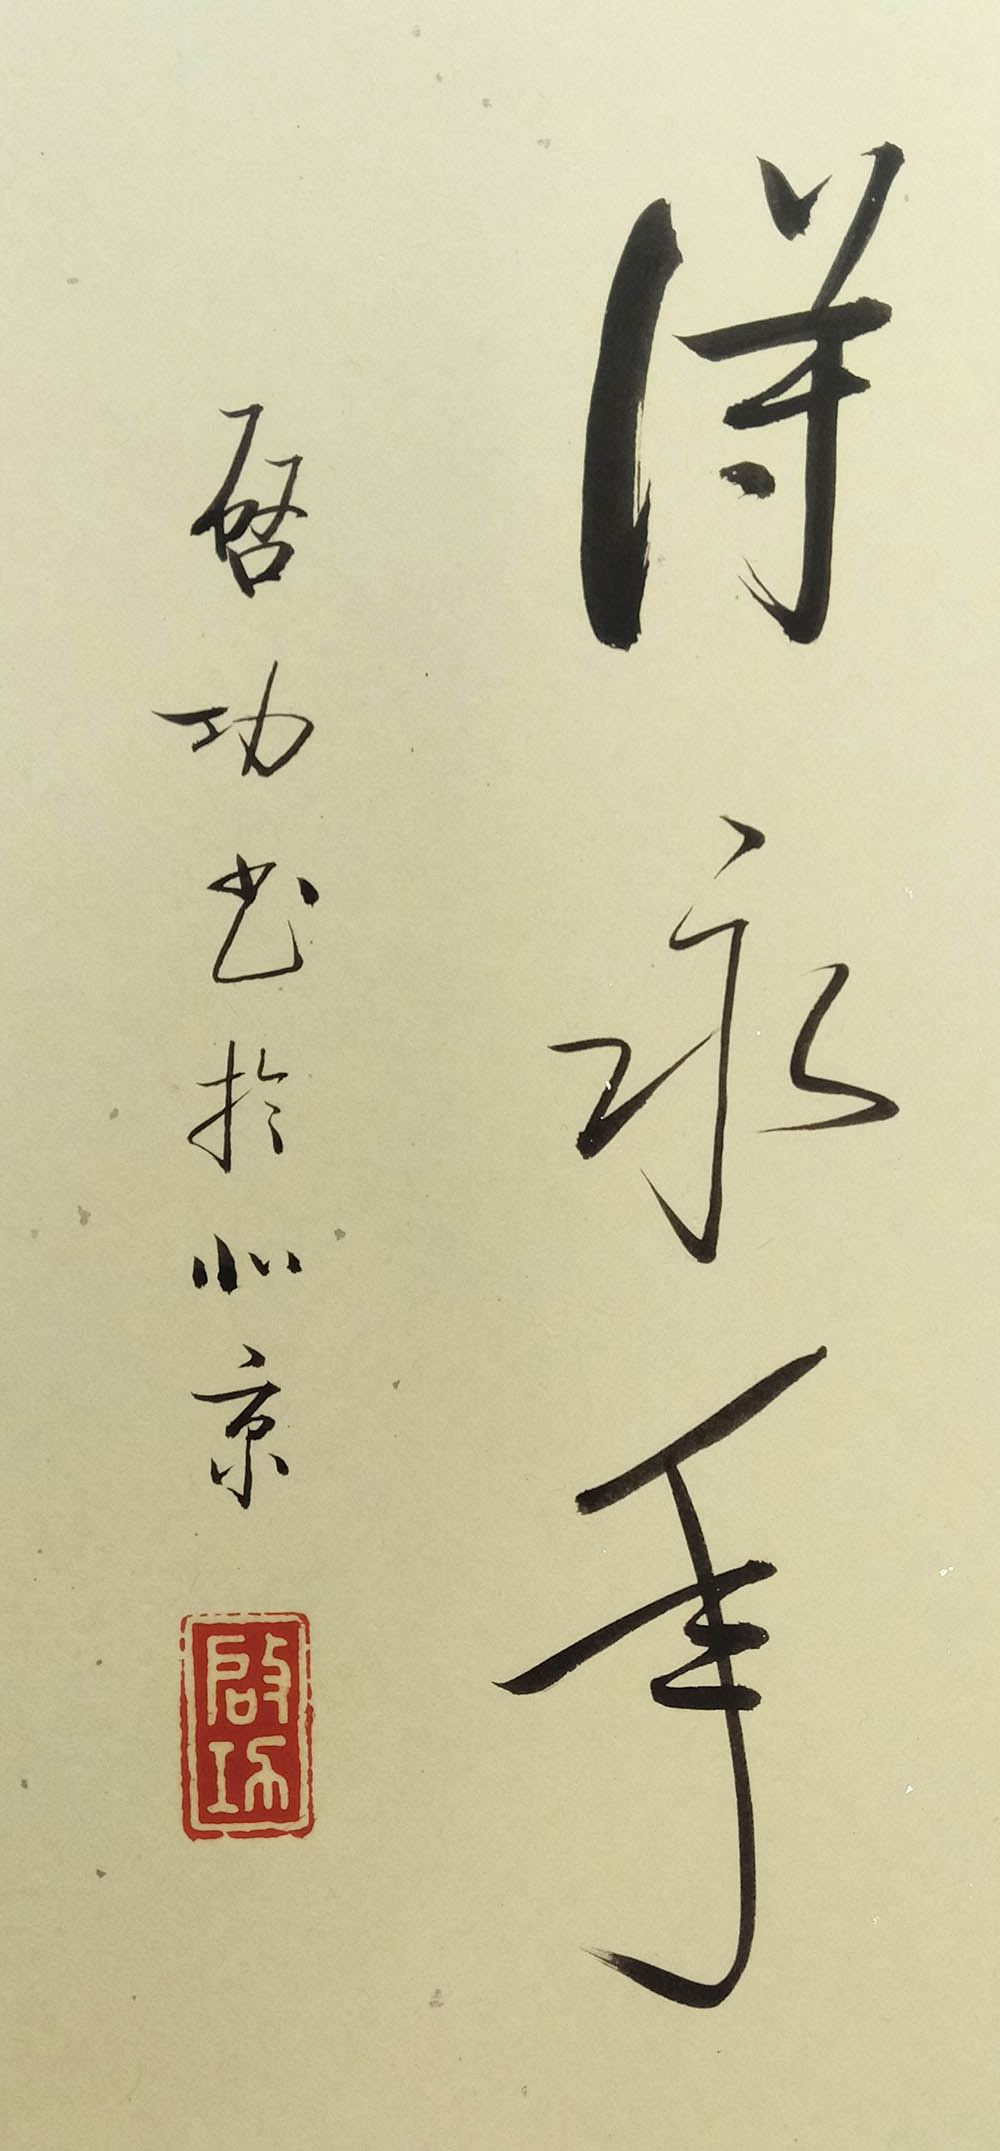 得永年
啓功书於北京
啟功